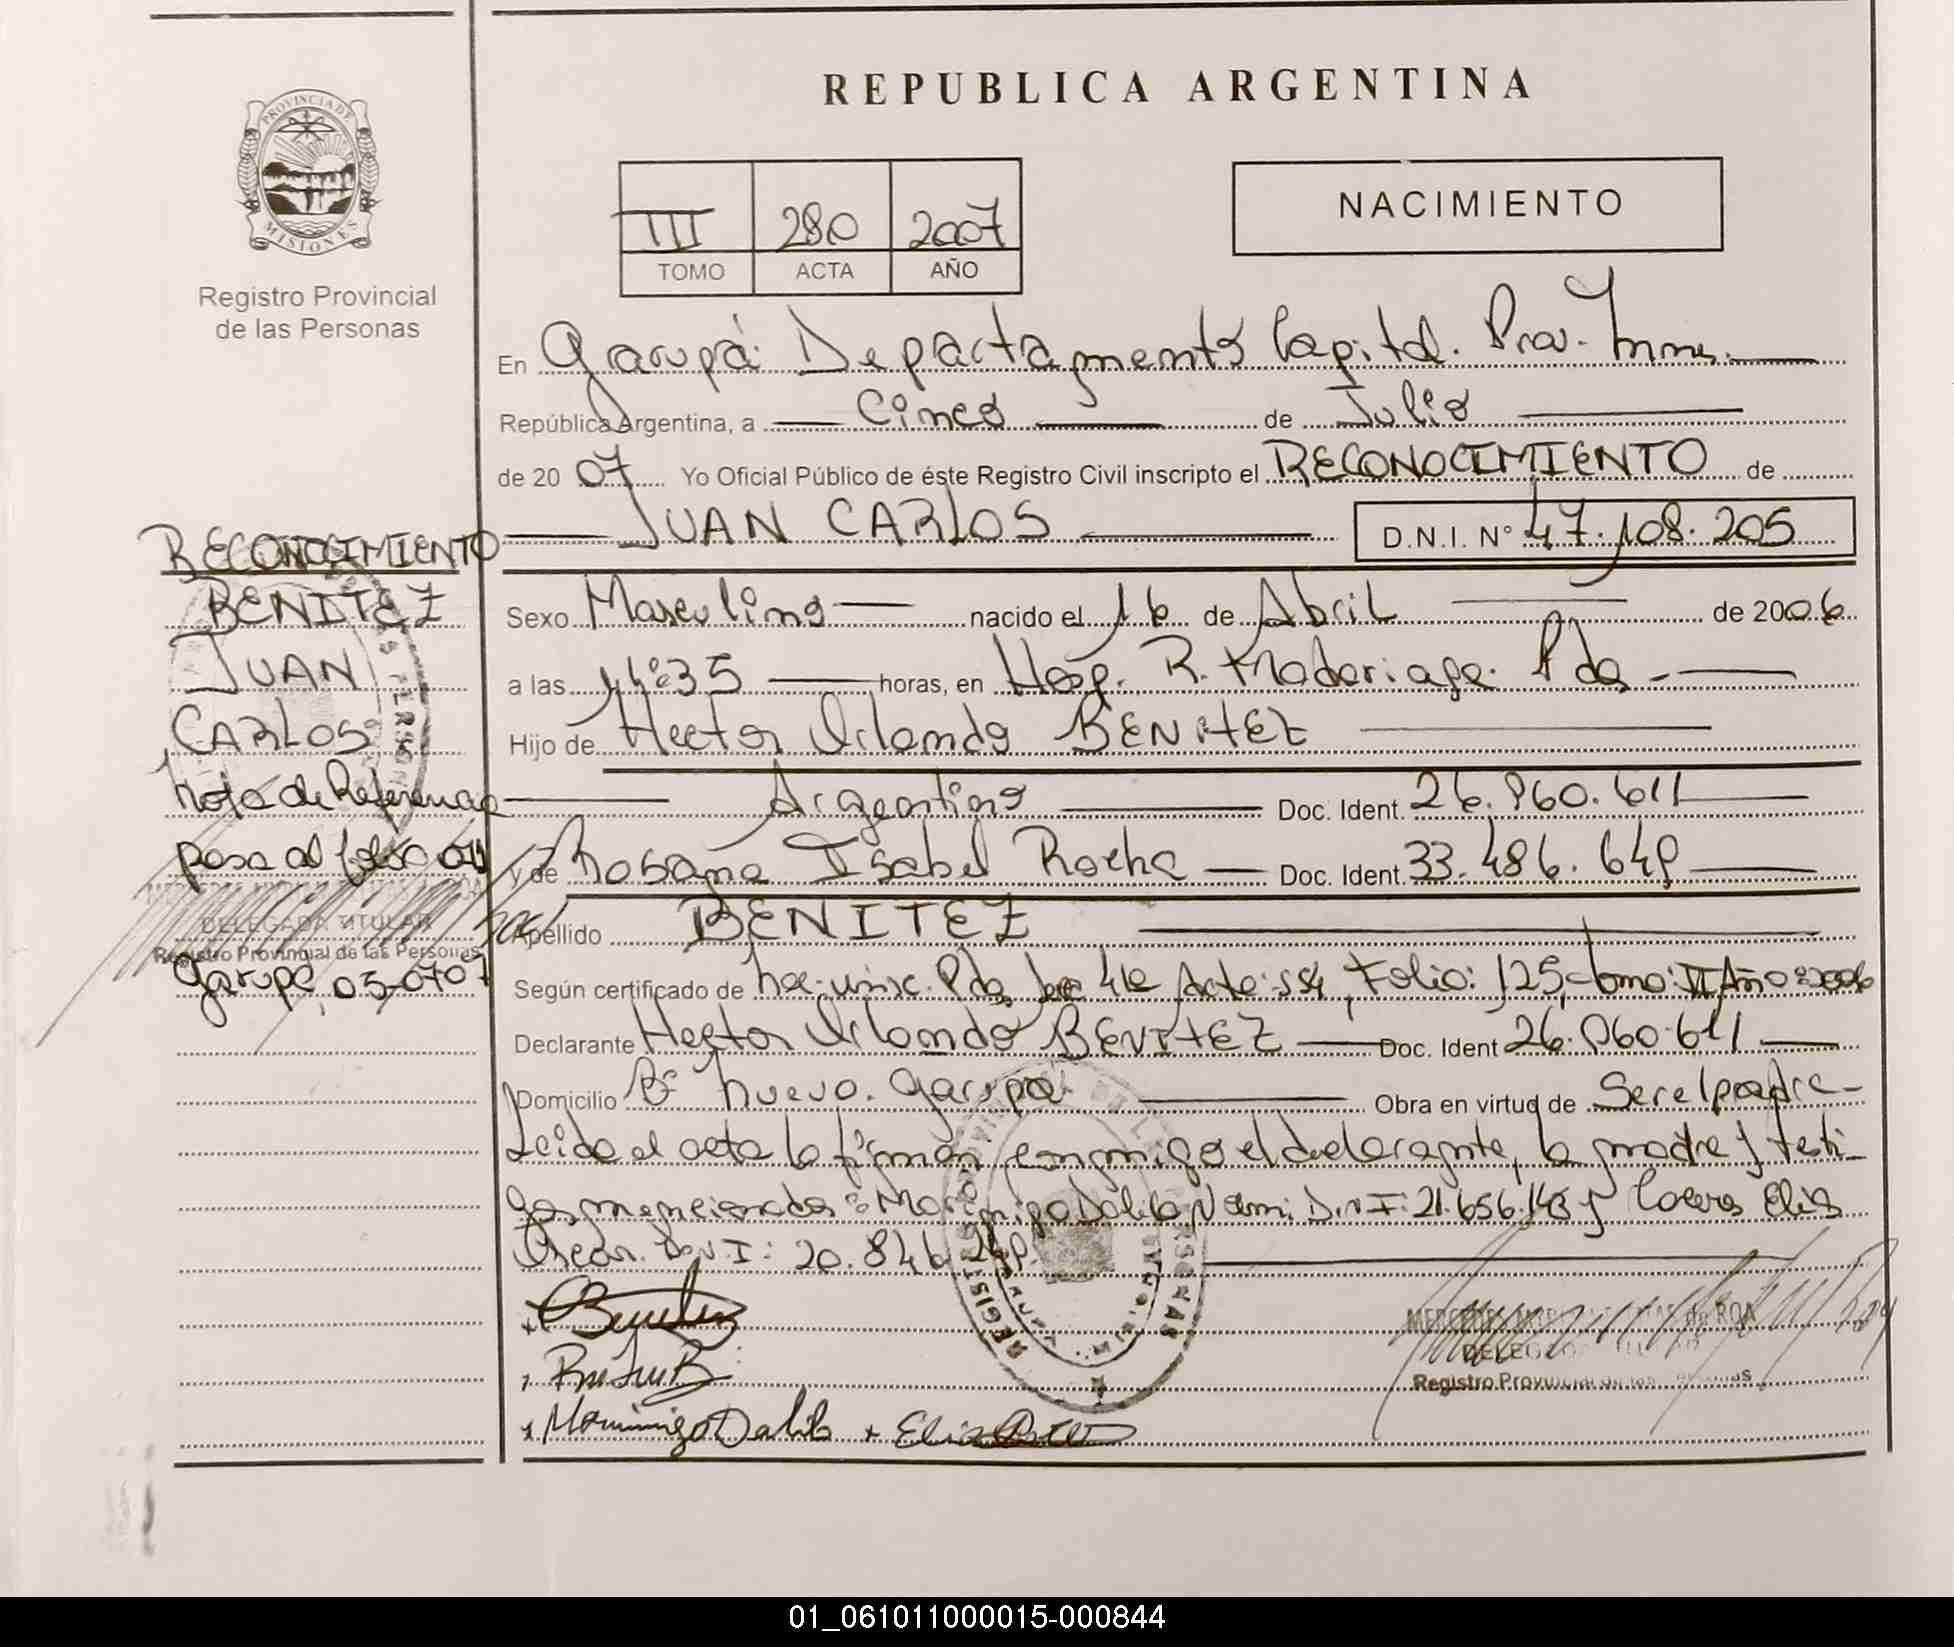 REPUBLICA ARGENTINA
PROVINCIA DE
MISIONES
Registro Provincial
de las Personas
III 280 2007
TOMO ACTA AÑO
NACIMIENTO
En Garupá Departamento Capital. Prov. Mnes.
República Argentina, a Cinco de Julio
de 2007 Yo Oficial Público de éste Registro Civil inscripto el RECONOCIMIENTO de
JUAN CARLOS D.N.I. N° 47.108.205
Sexo Masculino nacido el 16 de Abril de 2006
a las 11:35 horas, en Hosp. R. Madariaga. Pdas
Hijo de Hector Orlando BENITEZ
Argentino Doc. Ident. 26.960.611
y de Rosana Isabel Rocha Doc. Ident. 33.486.649
Apellido BENITEZ
Según certificado de Pdas Acta: 554, Folio: 125, tomo: II Año: 2006
Declarante Hector Orlando BENITEZ Doc. Ident 26.960.611
Domicilio B° Nuevo. Garupá Obra en virtud de Ser el padre
Leida el acta la firman conmigo el declarante, la madre y testi-
gos mencionados: Morinigo Dalila Noemi D.N.I: 21.656.143 y Elis
Oscar. D.N.I: 20.846
RECONOCIMIENTO
BENITEZ
JUAN
CARLOS
Nota de Referencia
pasa al folio
DELEGADA TITULAR
Registro Provincial de las Personas
Garupá, 05-07-07
Morinigo Dalila
DE ROA
Registro Provincial de las Personas
01_061011000015-000844